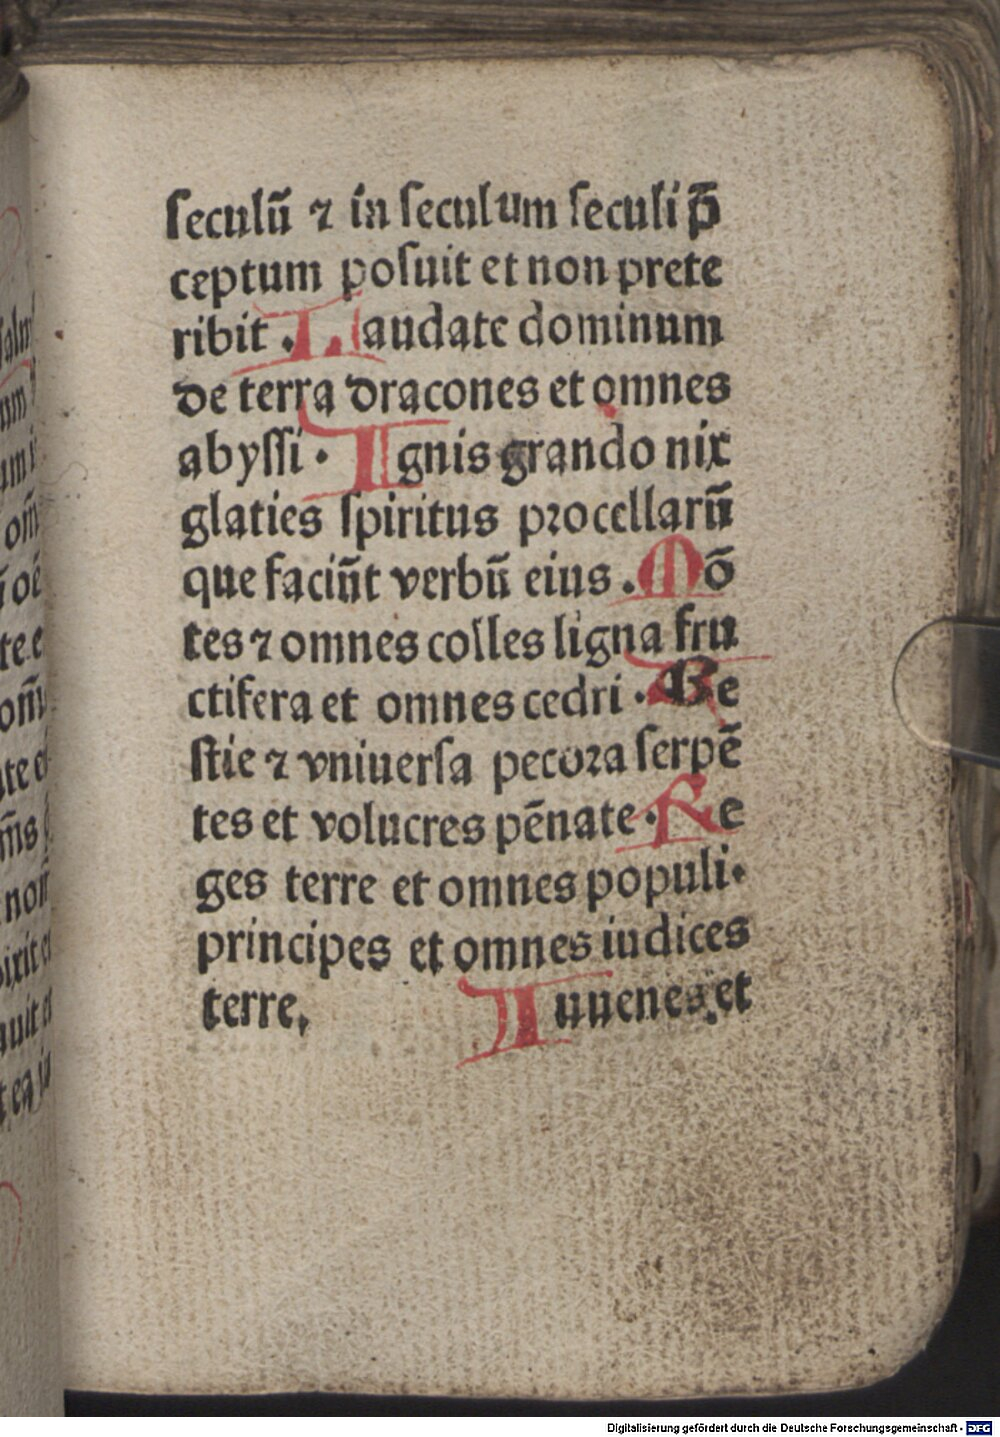 seculū ⁊ in seculum seculi p̄
ceptum posuit et non prete
ribit . Laudate dominum
de terra dracones et omnes
abyssi . Ignis grando nix
glaties spiritus procellarū
que faciūt verbū eius . Mō
tes ⁊ omnes colles ligna fru
ctifera et omnes cedri . Be
stie ⁊ vniuersa pecora serpē
tes et volucres pēnate . Re
ges terre et omnes populi .
principes et omnes iudices
terre, Iuuenes et
Digitalisierung gefördert durch die Deutsche Forschungsgemeinschaft - DFG